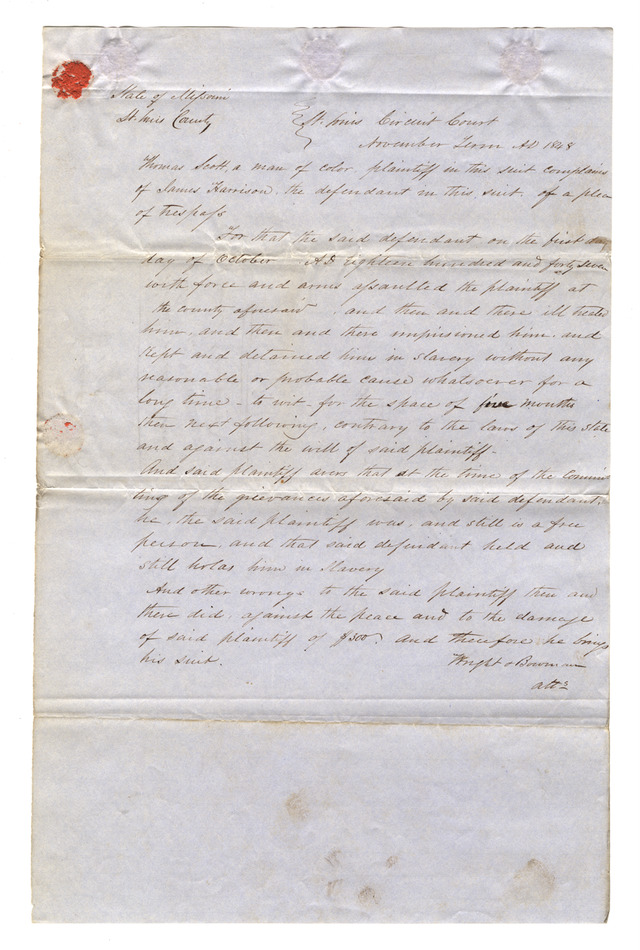 State of Missouri
St. Louis County } St. Louis Circuit Court
November Term AD 1848
Thomas Scott, a man of color, plaintiff in this suit complains
of James Harrison, the defendant in this suit, of a plea
of trespass
For that the said defendant on the first
day of October AD eighteen hundred and forty seven
with force and arms assaulted the plaintiff at
the county aforesaid, and then and there ill treated
him, and then and there imprisoned him, and
kept and detained him in slavery without any
reasonable or probable cause whatsoever for a
long time - to wit, for the space of five months
then next following, contrary to the laws of this State
and against the will of said plaintiff -
And said plaintiff avers that at the time of the commit
ting of the grievances aforesaid by said defendant,
he, the said plaintiff was, and still is a free
person, and that said defendant held and
still holds him in slavery
And other wrongs to the said plaintiff then and
there did, against the peace and to the damage
of said plaintiff of $300. And therefore he brings
his suit. Wright & Bowman
atts